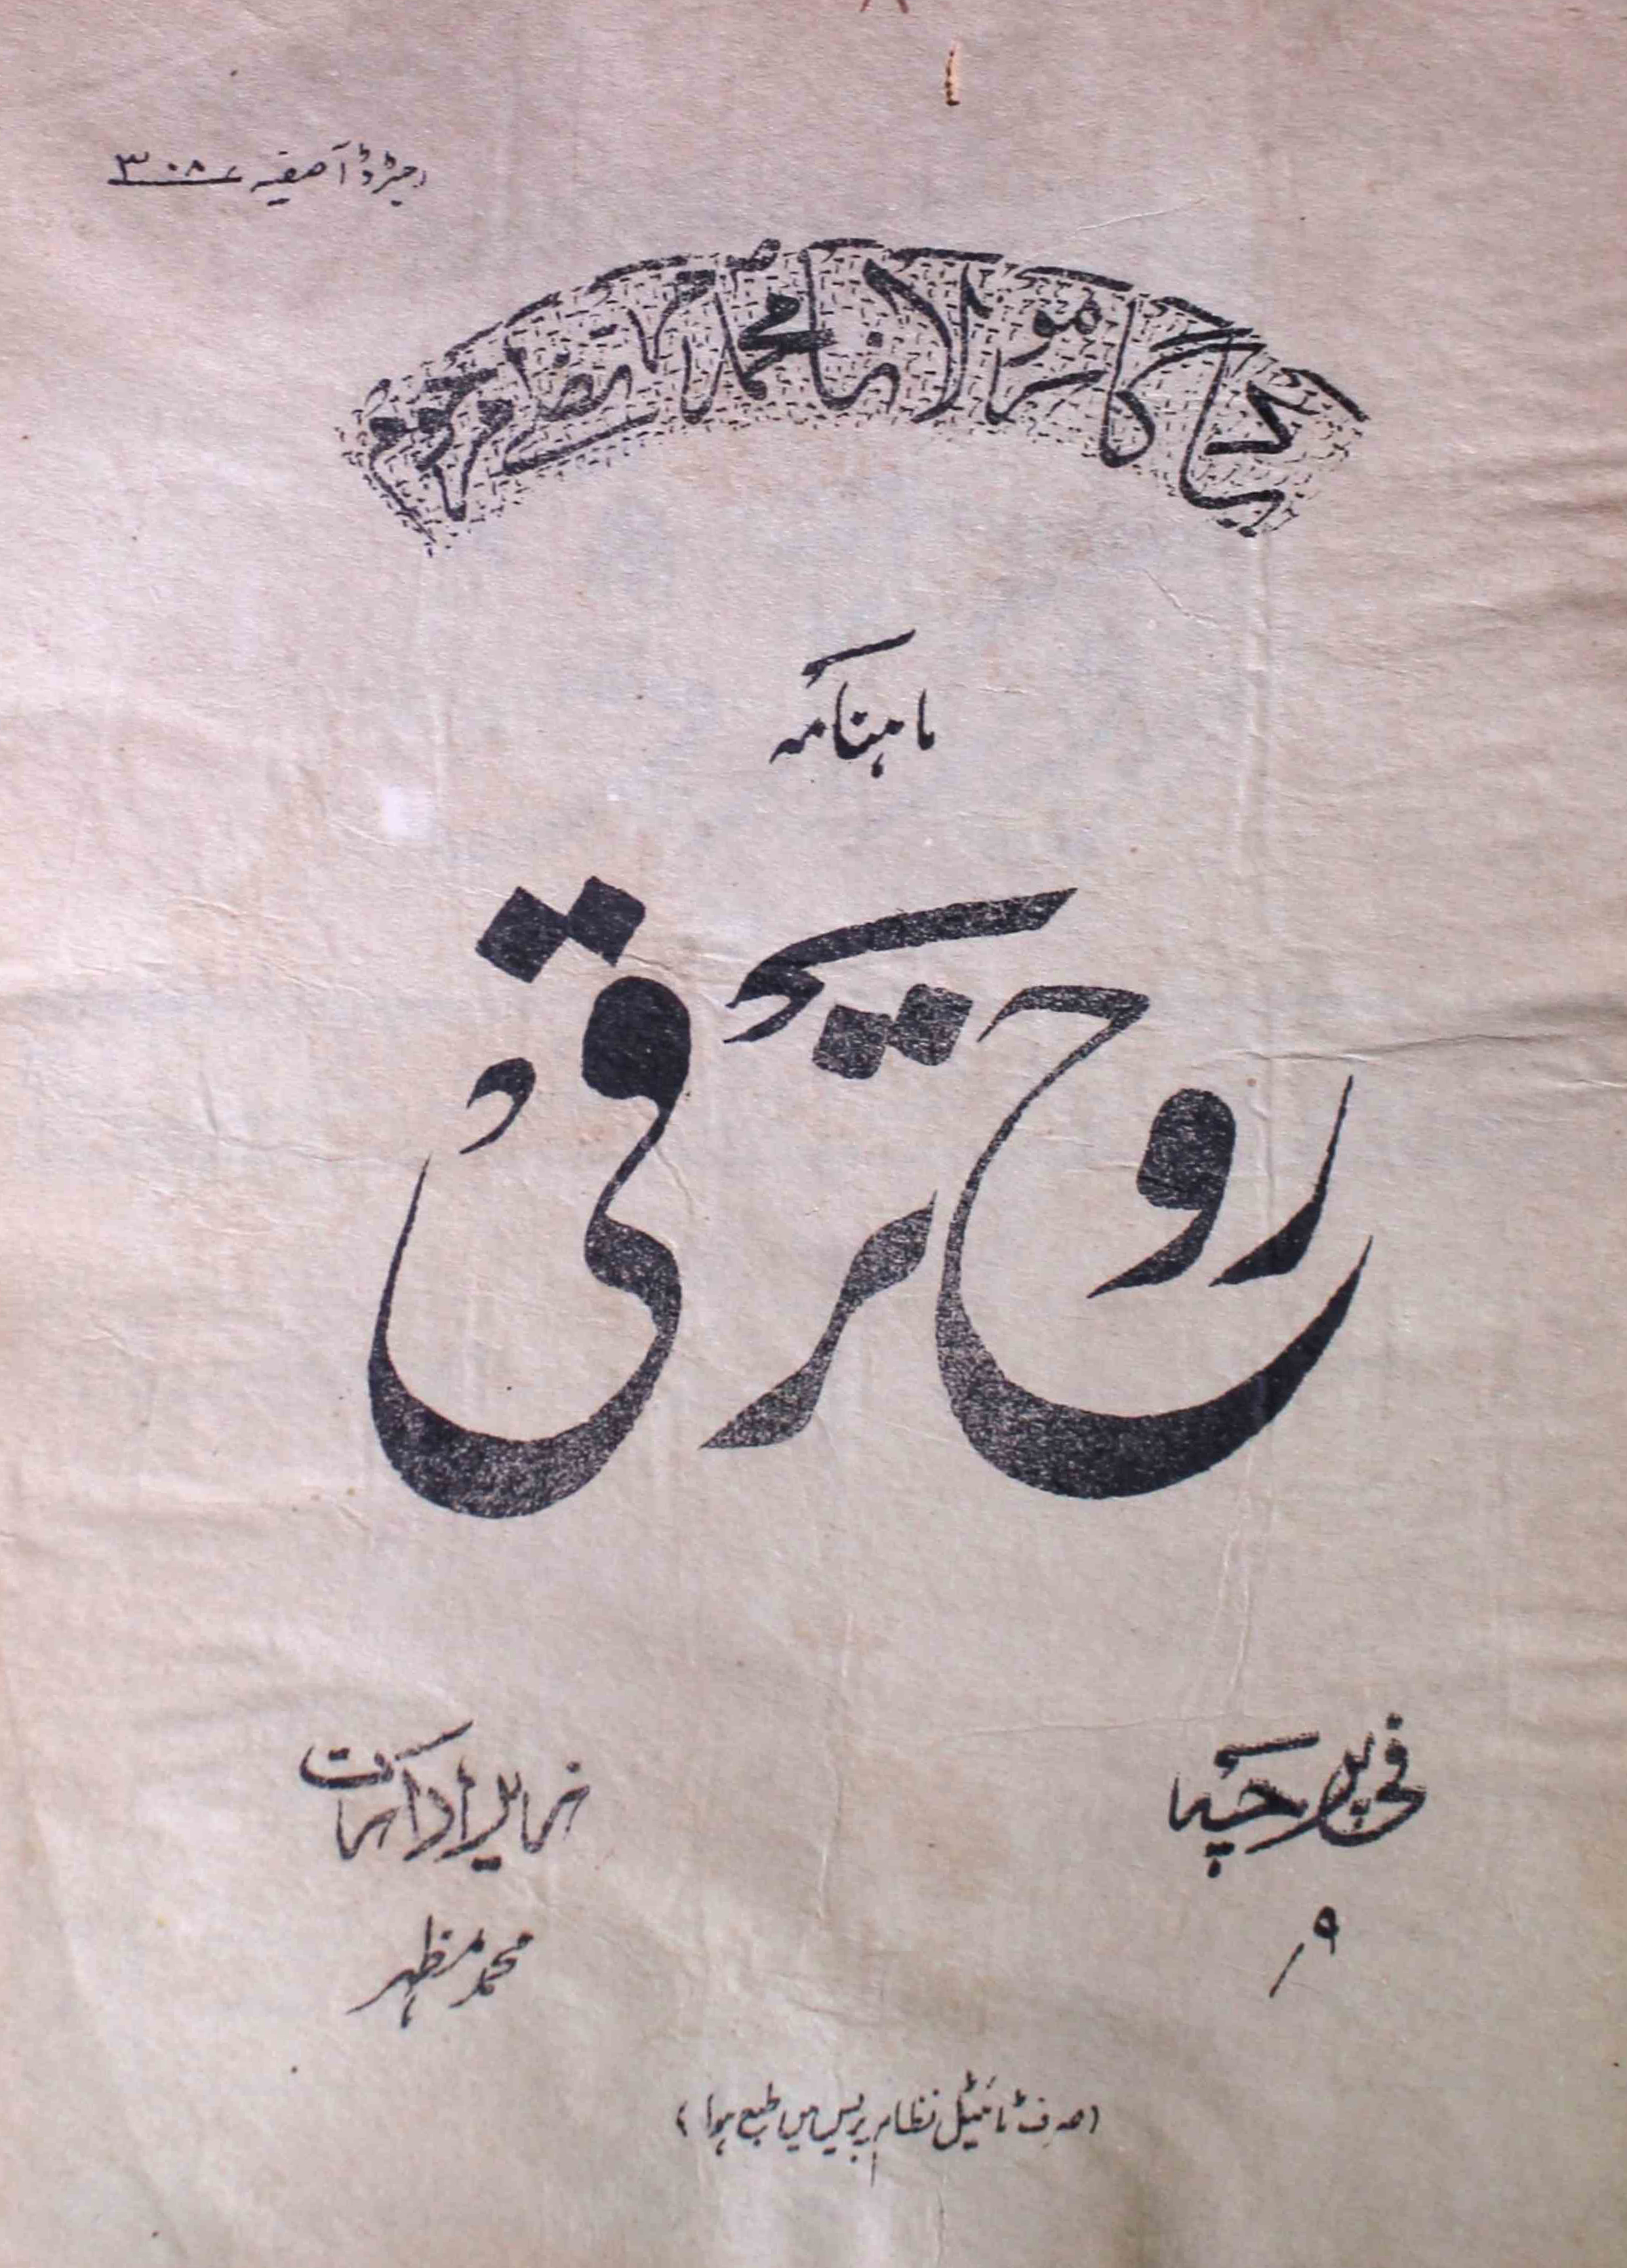 رجسٹرڈ آصفیہ ۳۰۸
بیادگار مولانا محمد مظہر مرحوم
ماہنامہ
روح ترقی
فی پرچہ
زیر ادارت
۹؍
محمد مظہر
(صرف ٹائیٹل نظام پریس میں طبع ہوا)